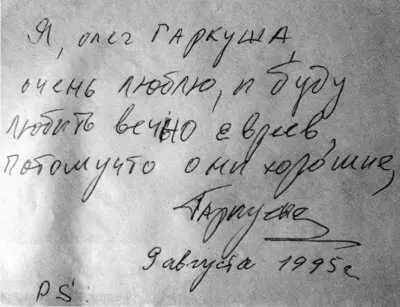 Я, олег Гаркуша,
очень люблю, и буду
любить вечно евреев,
потомучто они хорошие,
Гаркуша
9 августа 1995 г.
PS.